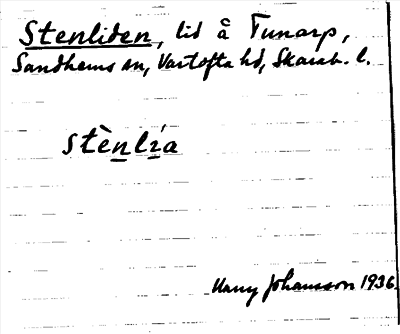 Stenliden, lid å Tunarp,
Sandhems sn, Vartofta hd, Skarab. l.
stènlía
Harry Johansson 1936.